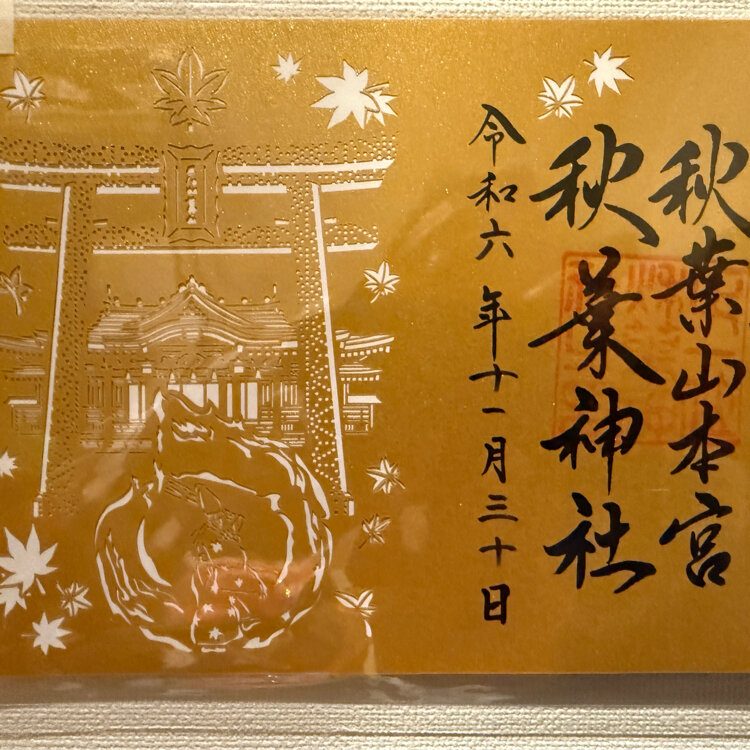 秋葉山本宮
秋葉神社
令和六年十一月三十日